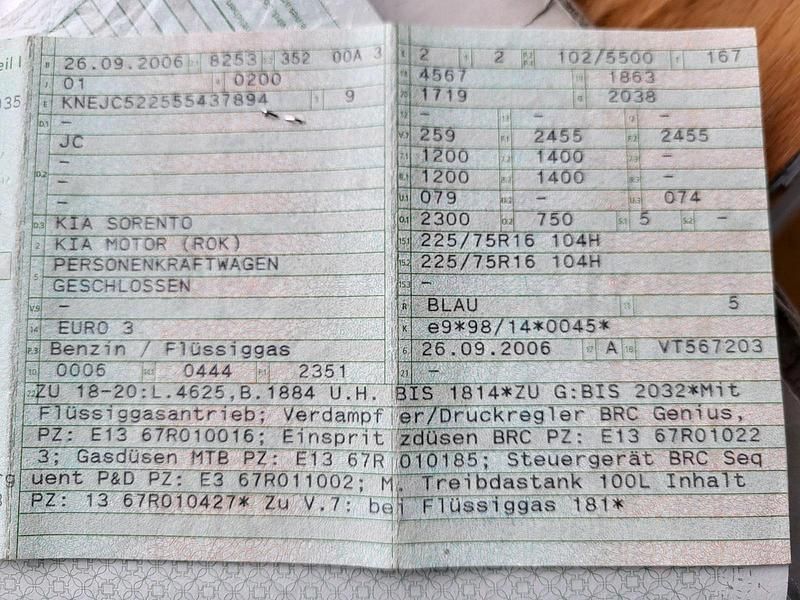 B 26.09.2006 2.1 8253 2.2 352 00A 3
J 01 4 0200
E KNEJC522555437894 3 9
D.1 –
JC
D.2 –
–
–
D.3 KIA SORENTO
2 KIA MOTOR (ROK)
5 PERSONENKRAFTWAGEN
GESCHLOSSEN
V.9 –
14 EURO 3
P.3 Benzin / Flüssiggas
10 0006 14.1 0444 P.1 2351
L 2 9 2 P.2 P.4 102/5500 T 167
18 4567 19 1863
20 1719 G 2038
12 – 13 – Q –
V.7 259 F.1 2455 F.2 2455
7.1 1200 7.2 1400 7.3 –
8.1 1200 8.2 1400 8.3 –
U.1 079 U.2 – U.3 074
O.1 2300 O.2 750 S.1 5 S.2 –
15.1 225/75R16 104H
15.2 225/75R16 104H
15.3 –
R BLAU 11 5
K e9*98/14*0045*
6 26.09.2006 17 A 16 VT567203
21 –
22 ZU 18-20:L.4625,B.1884 U.H. BIS 1814*ZU G:BIS 2032*Mit
Flüssiggasantrieb; Verdampfer/Druckregler BRC Genius,
PZ: E13 67R010016; Einspritzdüsen BRC PZ: E13 67R01022
3; Gasdüsen MTB PZ: E13 67R010185; Steuergerät BRC Seq
uent P&D PZ: E3 67R011002; M. Treibdastank 100L Inhalt
PZ: 13 67R010427* Zu V.7: bei Flüssiggas 181*